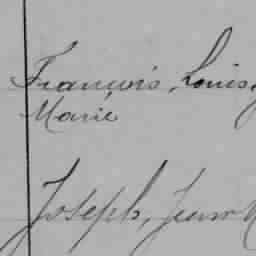 François, Louis,
Marie
Joseph, Jean